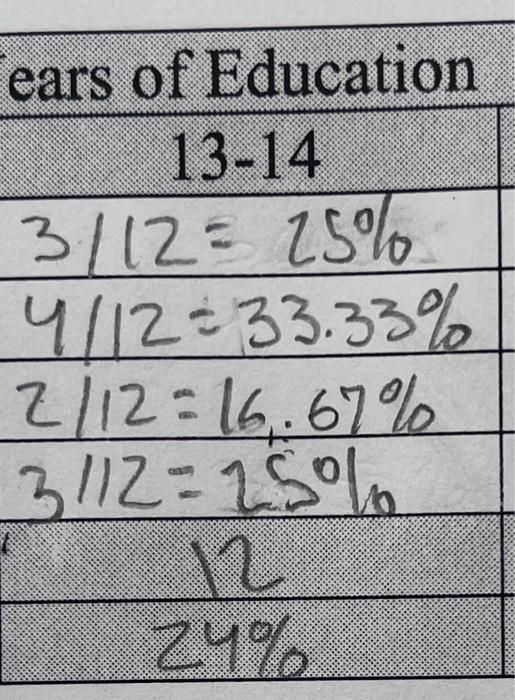 ears of Education
13-14
3/12= 25%
4/12=33.33%
2/12=16.67%
3/12=25%
12
24%